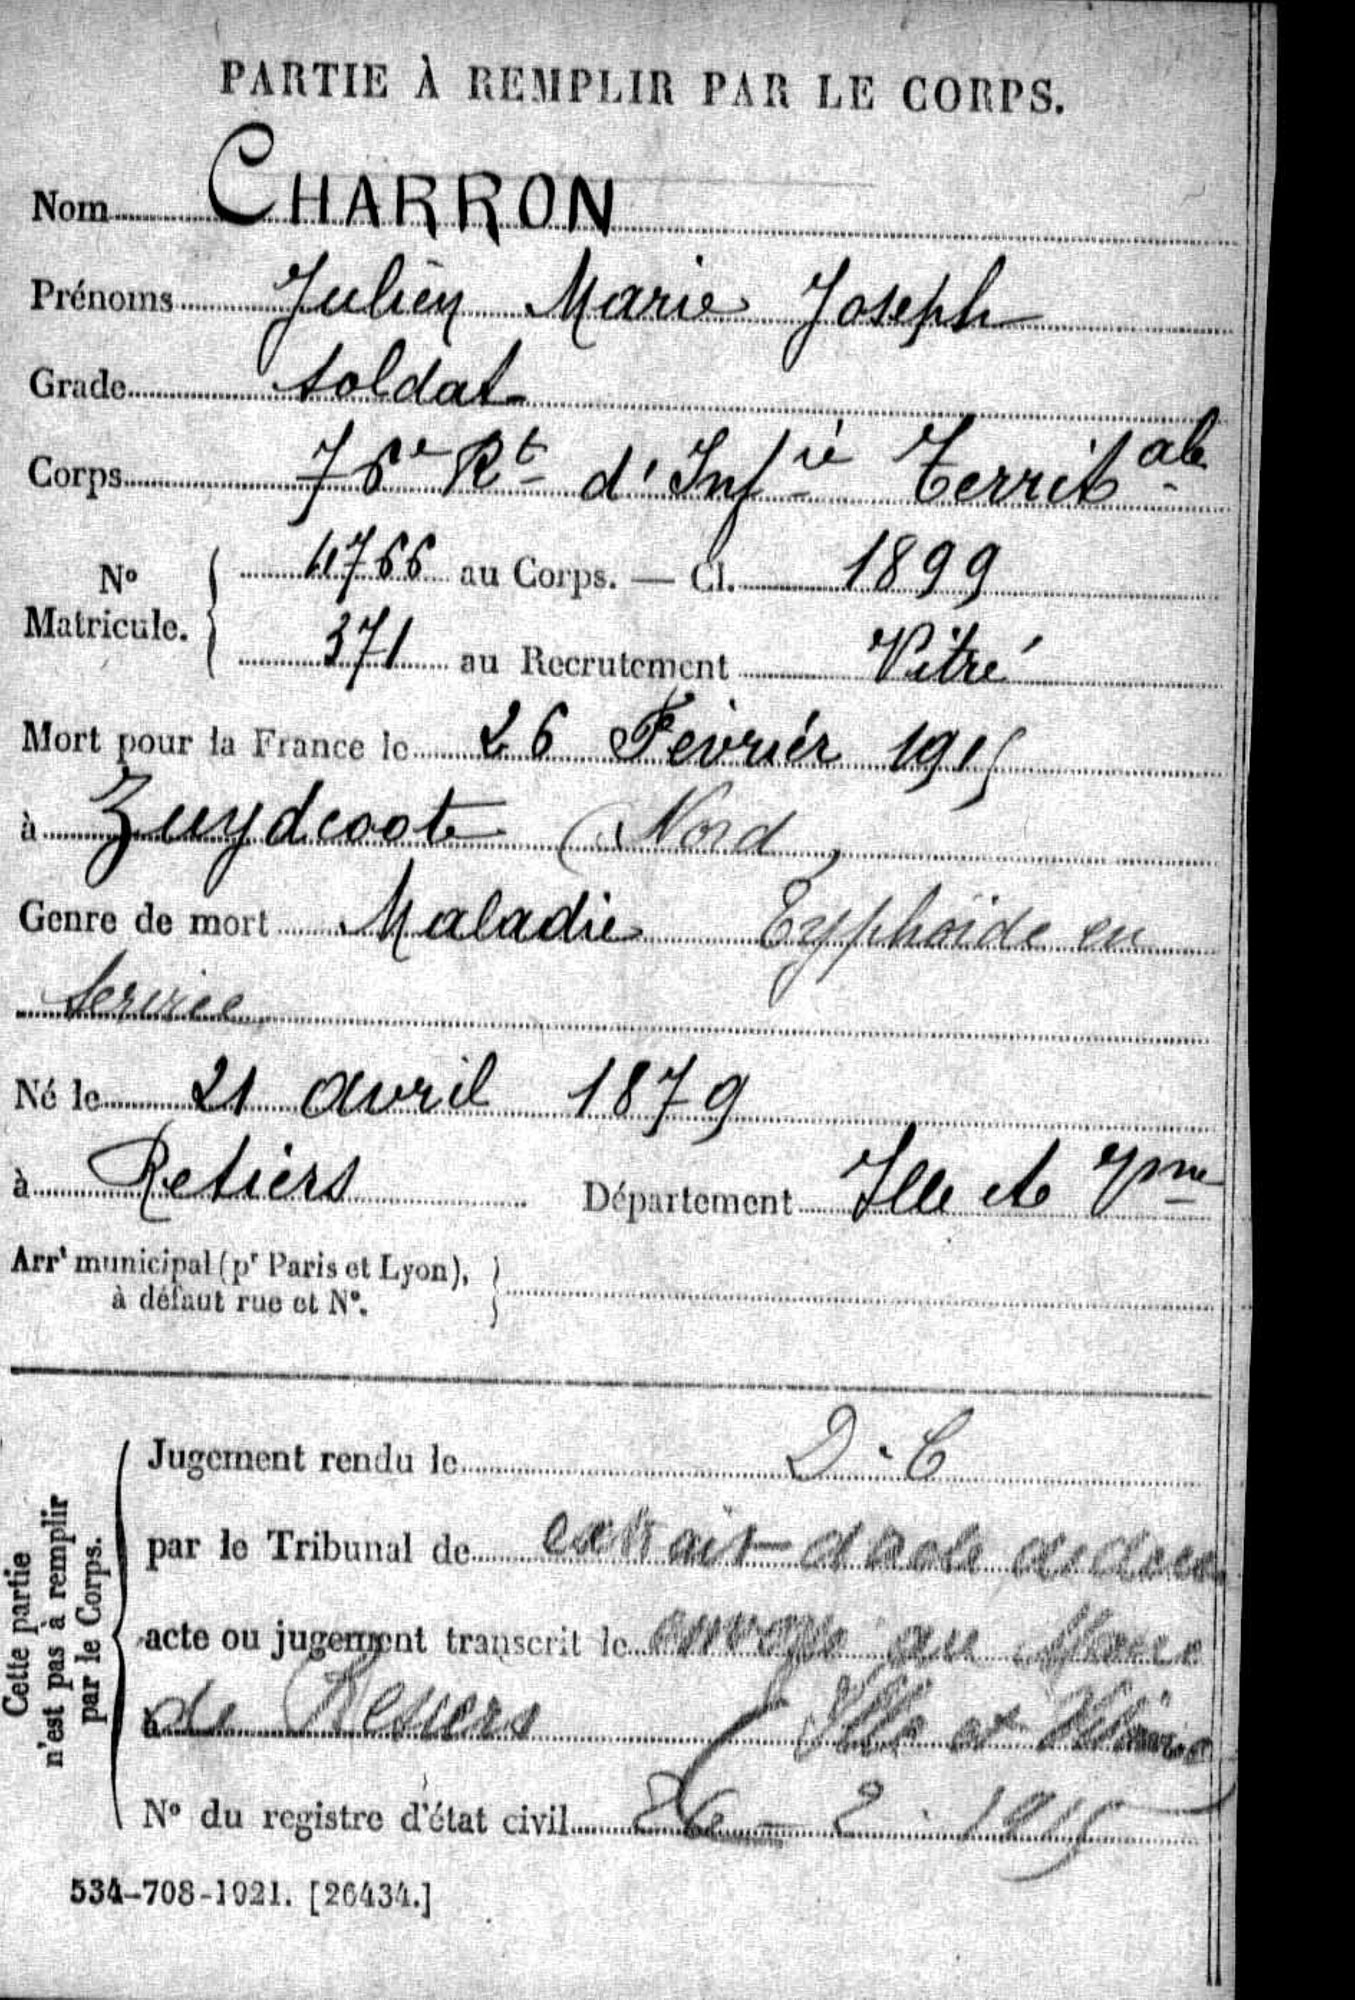 PARTIE À REMPLIR PAR LE CORPS.
Nom CHARRON
Prénoms Julien Marie Joseph
Grade soldat
Corps 76e Rt d'Infie Territale
No Matricule. 4766 au Corps. — Cl. 1899
371 au Recrutement Vitré
Mort pour la France le 26 Février 1915
à Zuydcoote (Nord)
Genre de mort Maladie Typhoïde en
service
Né le 21 avril 1879
à Retiers Département Ille et Vne
Arrt municipal (pr Paris et Lyon),
à défaut rue et No.
Cette partie
n'est pas à remplir
par le Corps.
Jugement rendu le D.C
par le Tribunal de extrait d'acte de
acte ou jugement transcrit le envoyé au Maire
à de Retiers (Ille et Vilaine
No du registre d'état civil 26-2.1915
534-708-1921. [26434.]